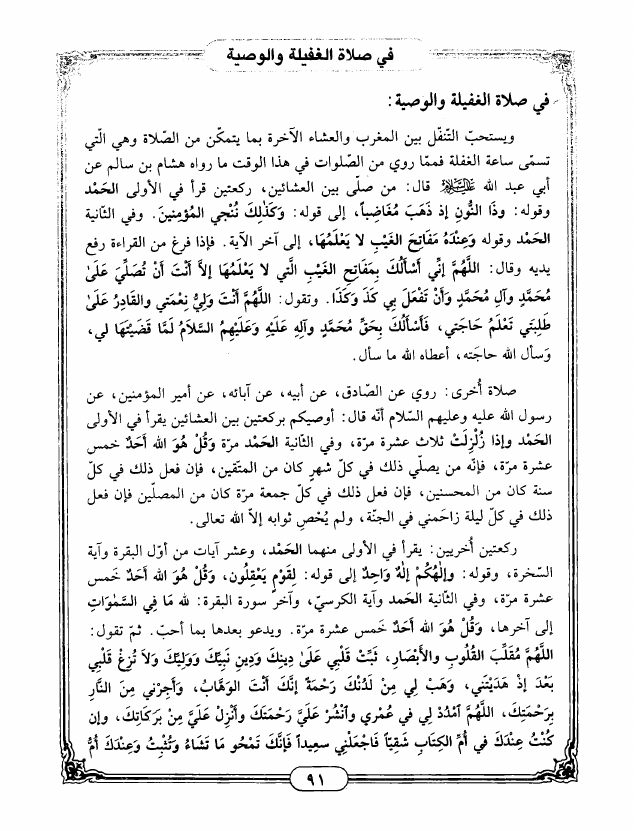 في صلاة الغفيلة والوصية
في صلاة الغفيلة والوصية:
ويستحبّ التّنفّل بين المغرب والعشاء الآخرة بما يتمكّن من الصّلاة وهي الّتي
تسمّى ساعة الغفلة فممّا روي من الصّلوات في هذا الوقت ما رواه هشام بن سالم عن
أبي عبد الله عليه السلام قال: من صلّى بين العشائين، ركعتين قرأ في الأولى الحَمْد
وقوله: وذَا النُّونِ إذ ذَهَبَ مُغَاضِباً، إلى قوله: وَكَذَلِكَ نُنْجِي المُؤمِنينَ. وفي الثّانية
الحَمْد وقوله وَعِنْدَهُ مَفَاتِحَ الغَيْبِ لا يَعْلَمُهَا، إلى آخر الآية. فإذا فرغ من القراءة رفع
يديه وقال: اللَّهُمَّ إنّي أَسْأَلُكَ بِمَفَاتحِ الغَيْبِ الَّتي لا يَعْلَمُهَا إلاَّ أَنْتَ أَنْ تُصَلِّيَ عَلَىٰ
مُحَمَّدٍ وآلِ مُحَمَّدٍ وَأَنْ تَفْعَلَ بِي كَذَ وَكَذَا. وتقول: اللَّهُمَّ أَنْتَ وَلِيُّ نِعْمَتي والقَادِرُ عَلَىٰ
طَلِبَتي تَعْلَمُ حَاجَتي، فَأَسْأَلُكَ بِحَقِّ مُحَمَّدٍ وآلِهِ عَلَيْهِ وَعَلَيْهِمُ السَّلاَمُ لَمَّا قَضَيْتَهَا لي،
وَسأل الله حاجته، أعطاه الله ما سأل.
صلاة أُخرى: روي عن الصّادق، عن أبيه، عن آبائه، عن أمير المؤمنين، عن
رسول الله عليه وعليهم السّلام أنّه قال: أوصيكم بركعتين بين العشائين يقرأ في الأولى
الحَمْد وإذا زُلْزِلَتْ ثلاث عشرة مرّة، وفي الثّانية الحَمْد مرّة وَقُلْ هُوَ الله أَحَدٌ خمس
عشرة مرّة، فإنّه من يصلّي ذلك في كلّ شهرٍ كان من المتّقين، فإن فعل ذلك في كلّ
سنة كان من المحسنين، فإن فعل ذلك في كلّ جمعة مرّة كان من المصلّين فإن فعل
ذلك في كلّ ليلة زاحَمني في الجنّة، ولم يُحْصِ ثوابه إلاّ الله تعالى.
ركعتين أُخريين: يقرأ في الأولى منهما الحَمْد، وعشر آيات من أوّل البقرة وآية
السّخرة، وقوله: وإلٰهُكُمْ إلٰهٌ وَاحِدٌ إلى قوله: لِقَوْمٍ يَعْقِلُون، وَقُلْ هُوَ الله أَحَدٌ خَمس
عشرة مرّة، وفي الثّانية الحَمد وآية الكرسيّ، وآخر سورة البقرة: لله مَا فِي السَّمٰوَاتِ
إلى آخرها، وَقُلْ هُوَ الله أَحَدٌ خَمس عشرة مرّة. ويدعو بعدها بما أحبّ. ثمّ تقول:
اللَّهُمَّ مُقَلِّبَ القُلُوبِ والأَبْصَارِ، ثَبِّتْ قَلْبِي عَلَىٰ دِينِكَ وَدِينِ نَبِيِّكَ وَوَلِيِّكَ وَلاَ تُزِغْ قَلْبِي
بَعْدَ إذ هَدَيْتَنِي، وَهَبْ لِي مِنْ لَدُنْكَ رَحْمَةً إنَّكَ أَنْتَ الوَهَّابُ، وَأَجِرْنِي مِنَ النَّارِ
بِرَحْمَتِكَ، اللَّهُمَّ آمْدُدْ لِي في عُمْرِي وآنْشُرْ عَلَيَّ رَحْمَتَكَ وأَنْزِلْ عَلَيَّ مِنْ بَرَكَاتِكَ، وإن
كُنْتُ عِنْدَكَ في أُمِّ الكِتَابِ شَقِيّاً فَاجْعَلْنِي سَعِيداً فَإنَّكَ تَمْحُو مَا تَشَاءُ وَتُثْبِتُ وَعِنْدَكَ أُمُّ
٩١